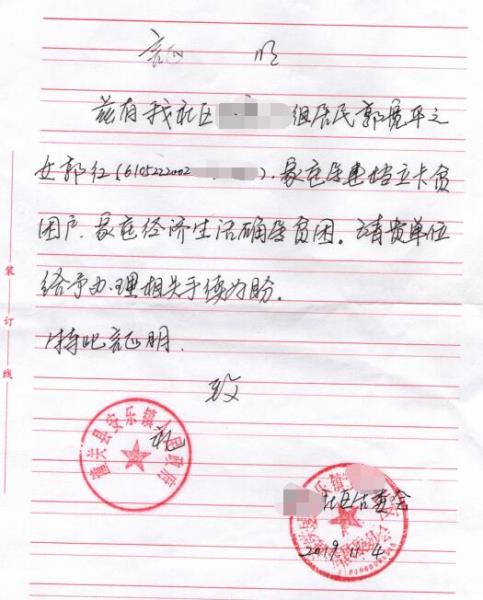 证 明
兹有我社区 组居民郭 平之
女郭红(610522002 )，家庭属建档立卡贫
困户，家庭经济生活确属贫困。请贵单位
给予办理相关手续为盼。
特此证明.
致
礼
社区居委会
2019.11.4
县安乐镇人民政府
安乐镇
装
订
线